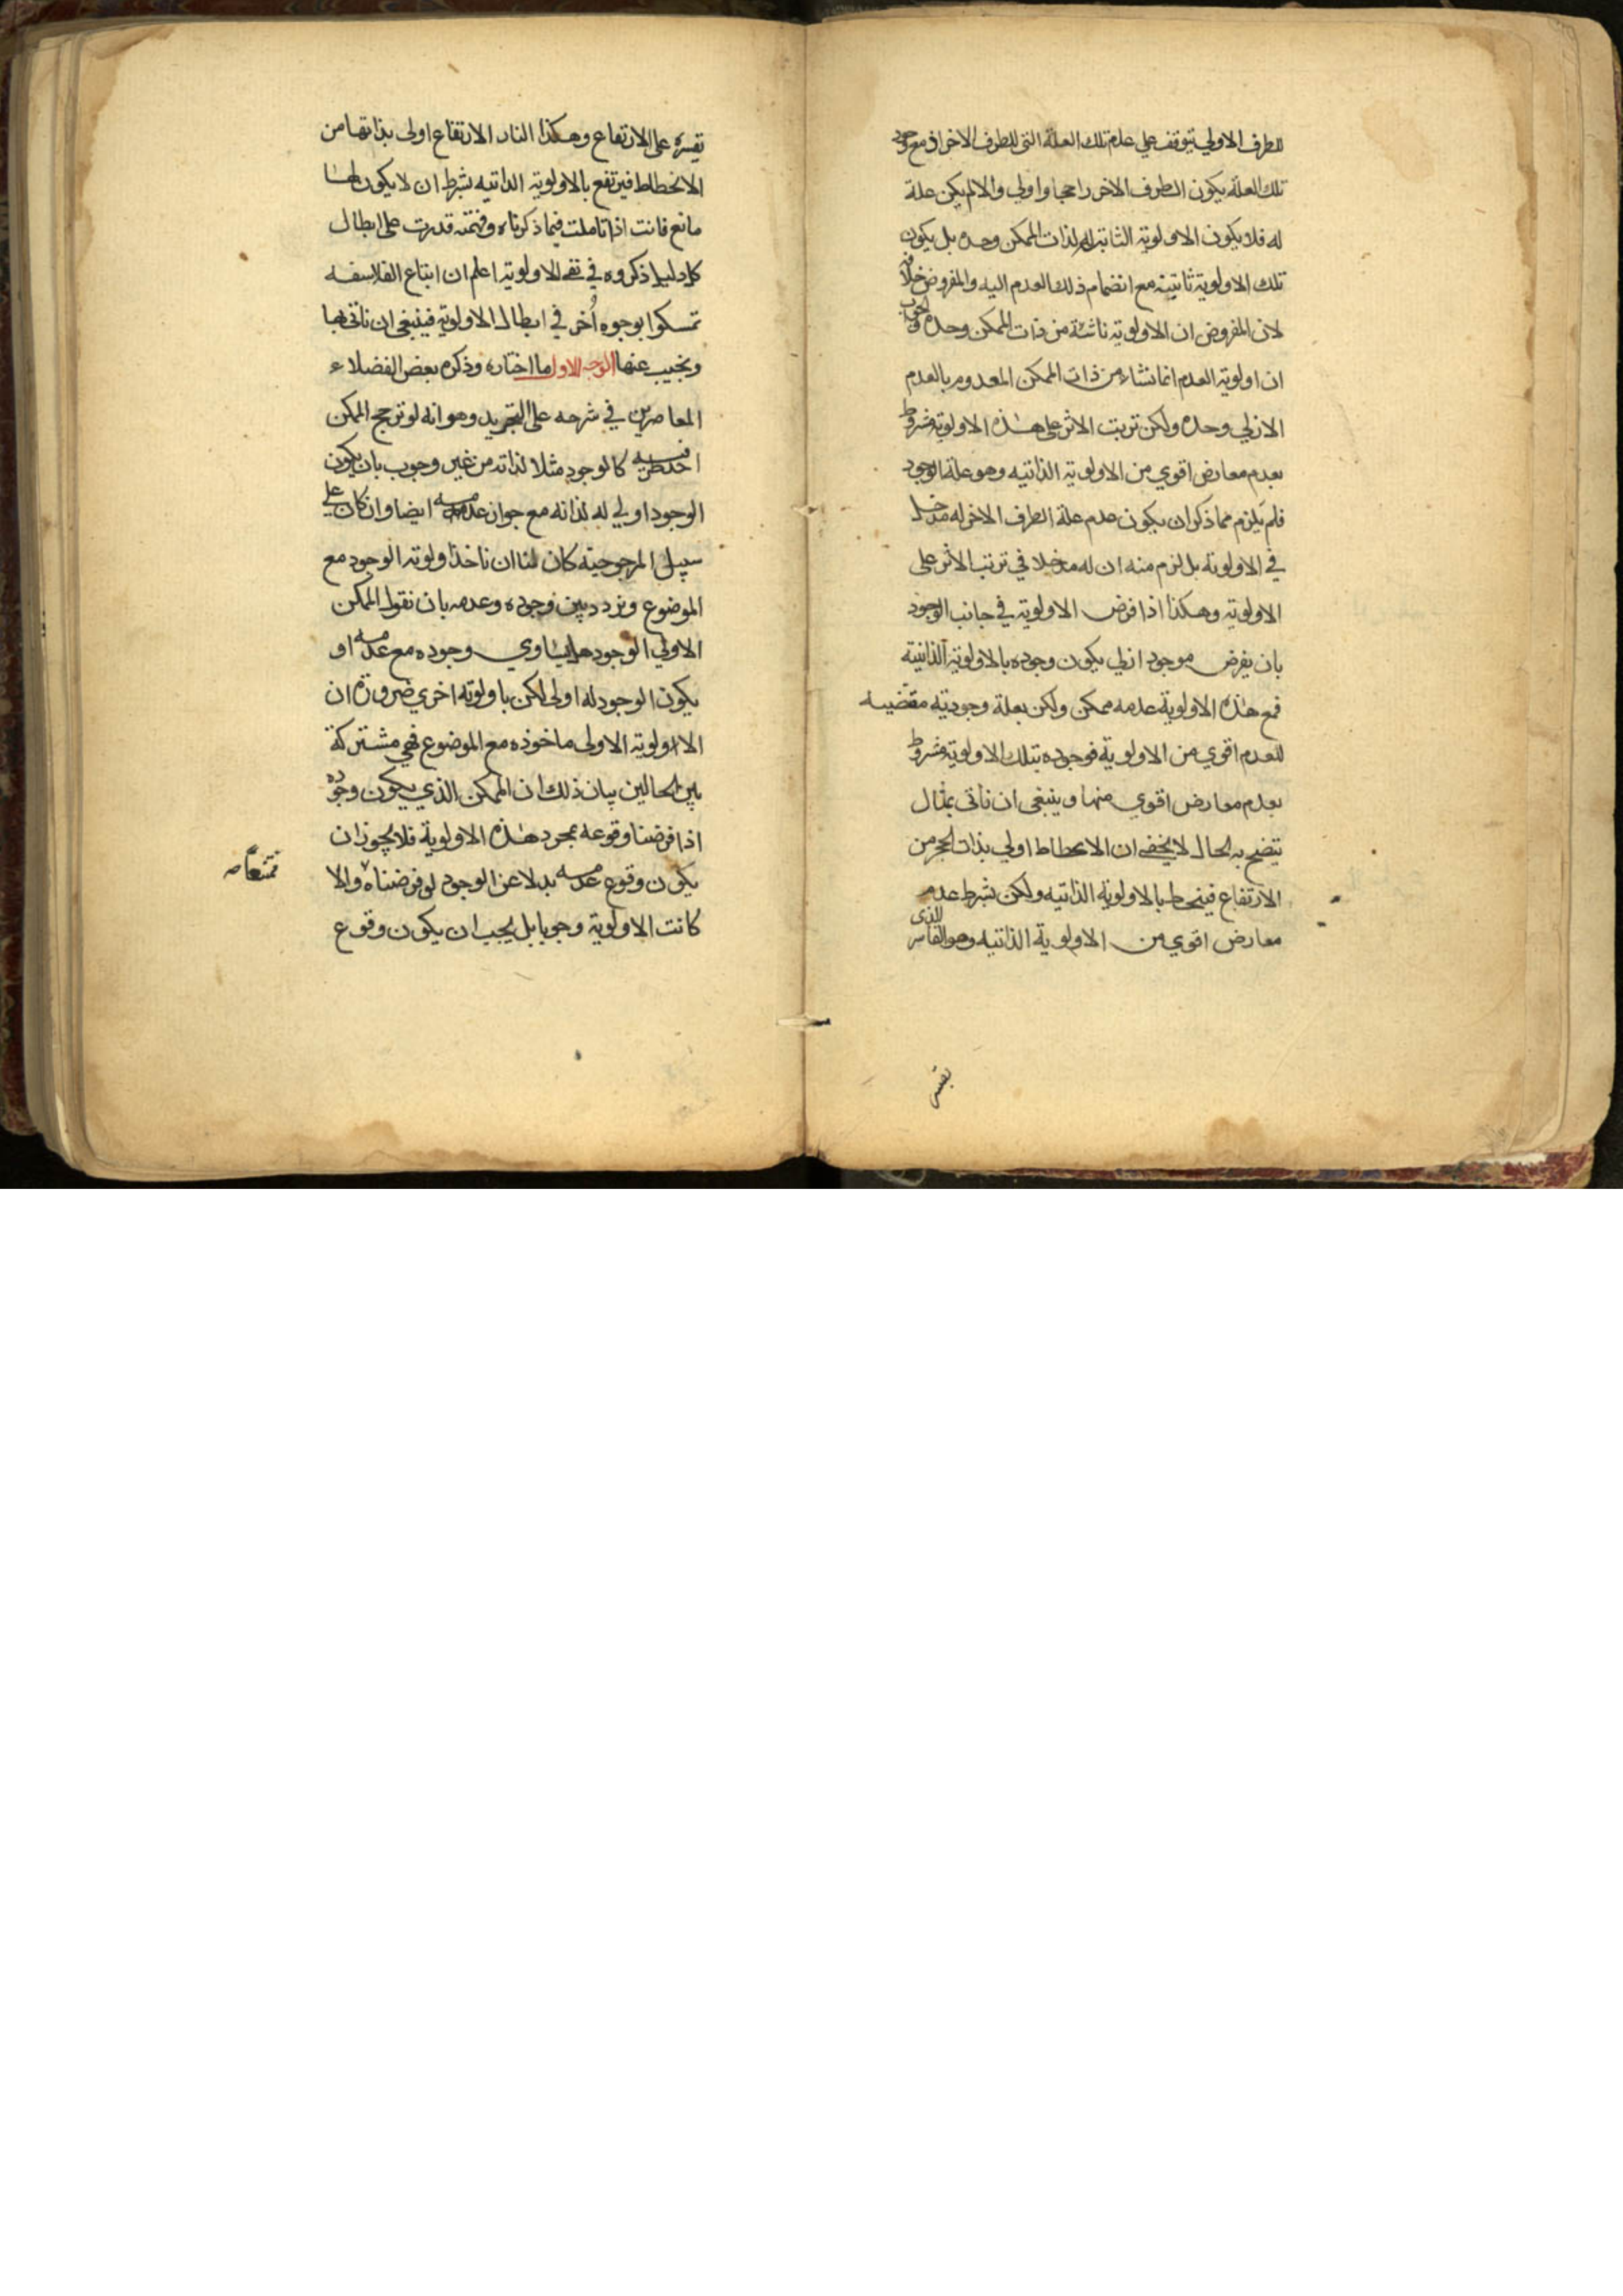 للطرف الاولي يتوقف علي عدم تلك العلة التي للطرف الاخر اذ مع وجود
تلك العلة يكون الطرف الاخر راجحا واولي والا لم يكن علة
له فلا يكون الاولوية الثابتة له لذات الممكن وحده بل يكون
تلك الاولوية ثابتة مع انضمام ذلك العدم اليه والمفروض خلافه
لان المفروض ان الاولوية ناشئة من ذات الممكن وحده والجواب
ان اولوية العدم انما تنشاء من ذات الممكن المعدوم بالعدم
الازلي وحده ولكن ترتب الاثر على هذه الاولوية مشروط
بعدم معارض اقوي من الاولوية الذاتيه وهو علة الوجود
فلم يلزم مما ذكر ان يكون عدم علة الطرف الاخر له مدخل
في الاولوية بل لزم منه ان له مدخلا في ترتب الاثر على
الاولوية وهكذا اذا فرض الاولوية في جانب الوجود
بان يفرض موجود ازلي يكون وجوده بالاولوية الذاتية
فمع هذه الاولوية عدمه ممكن ولكن بعلة وجودية مقتضيه
للعدم اقوي من الاولوية فوجوده بتلك الاولوية مشروط
بعدم معارض اقوي منها وينبغي ان ناتى بمثال
يتضح به الحال لا يخفى ان الانحطاط اولي بذات الحجر من
الارتفاع فينحط بالاولوية الذاتيه ولكن بشرط عدم
معارض اقوي من الاولوية الذاتيه وهو القاسر الذى
يقسره على الارتفاع وهكذا النار الارتفاع اولى بذاتها من
الانحطاط فيرتفع بالاولوية الذاتيه بشرط ان لا يكون لها
مانع فانت اذا تاملت فيما ذكرناه وفهمته قدرت على ابطال
كل دليل ذكروه في نفى الاولوية اعلم ان اتباع الفلاسفه
تمسكوا بوجوه أُخر في ابطال الاولوية فينبغى ان ناتى بها
ونجيب عنها الوجه الاول ما اختاره وذكره بعض الفضلاء
المعاصرين في شرحه على التجريد وهو انه لو ترجح الممكن
احد طرفيه كالوجود مثلا لذاته من غير وجوب بان يكون
الوجود اولي له لذاته مع جواز عدمه ايضا وان كان علي
سبيل المرجوحية كان لنا ان ناخذ اولوية الوجود مع
الموضوع ونردد بين وجوده وعدمه بان نقول الممكن
الاولي الوجود هل يساوي وجوده مع عدمه او
يكون الوجود له اولى لكن باولوية اخري ضرورة ان
الاولوية الاولى ماخوذه مع الموضوع فهي مشتركة
بين الحالين بيان ذلك ان الممكن الذي يكون وجوده
اذا فرضنا وقوعه بمجرد هذه الاولوية فلا يجوز ان
يكون وقوع عدمه بدلا عن الوجود لو فرضناه والا
كانت الاولوية وجوبا بل يجب ان يكون وقوع
ممتنعا صه